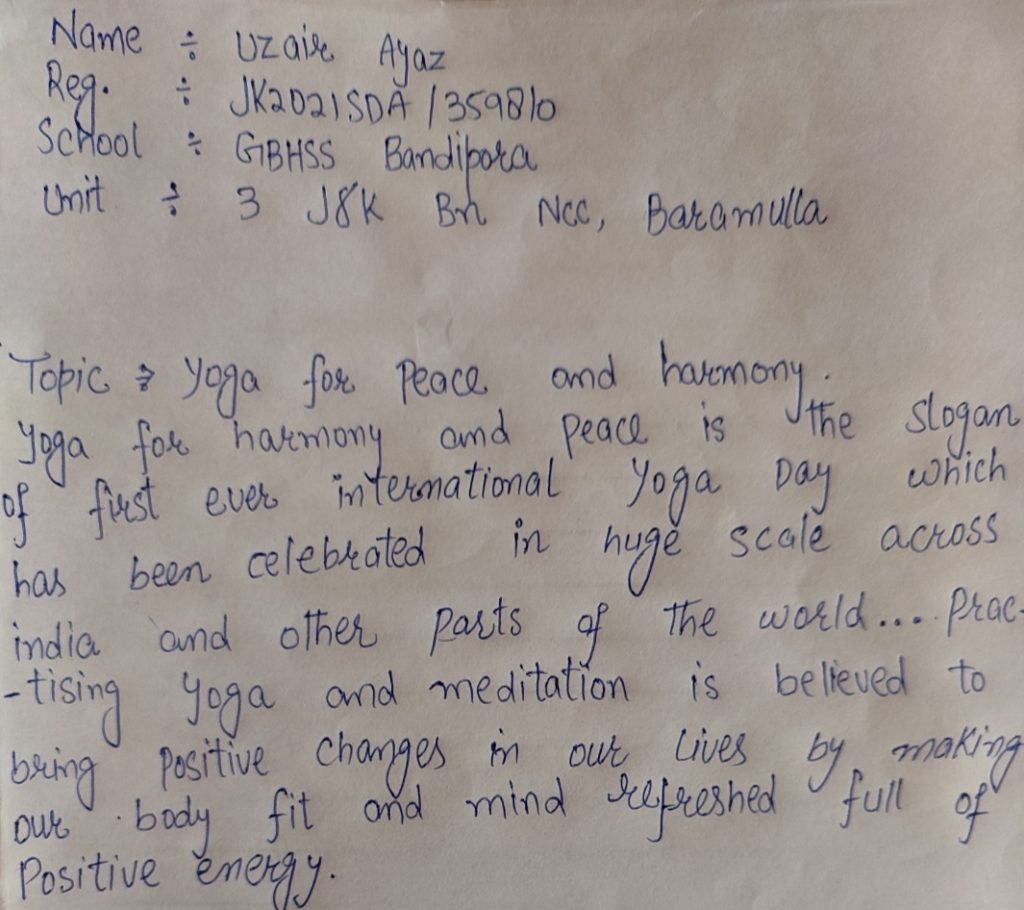 Name ÷ Uzair Ayaz
Reg. ÷ JK2021SDA/359810
School ÷ GBHSS Bandipora
Unit ÷ 3 J&K Bn Ncc, Baramulla
Topic → Yoga for Peace and harmony.
Yoga for harmony and peace is the slogan
of first ever international Yoga Day which
has been celebrated in huge scale across
india and other Parts of the world.... Prac-
-tising Yoga and meditation is believed to
bring Positive changes in our lives by making
our body fit and mind refreshed full of
Positive energy.